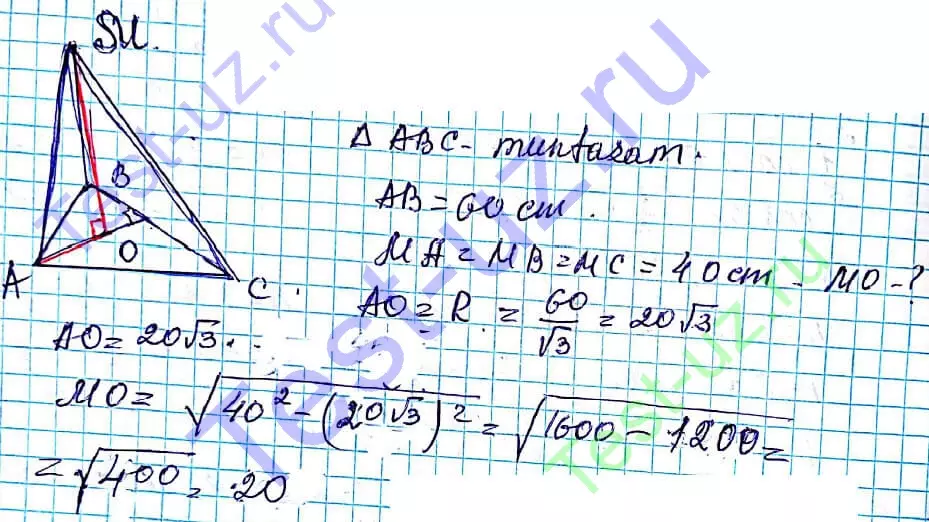 M.
B
O
A
C
Δ ABC - muntazam.
AB = 60 cm.
MA = MB = MC = 40 cm - MO - ?
AO = R = 60/√3 = 20√3
AO = 20√3.
MO = √(40² - (20√3)²) = √(1600 - 1200) =
= √400 = 20
Test-uz.ru
Test-uz.ru
Test-uz.ru
Test-uz.ru